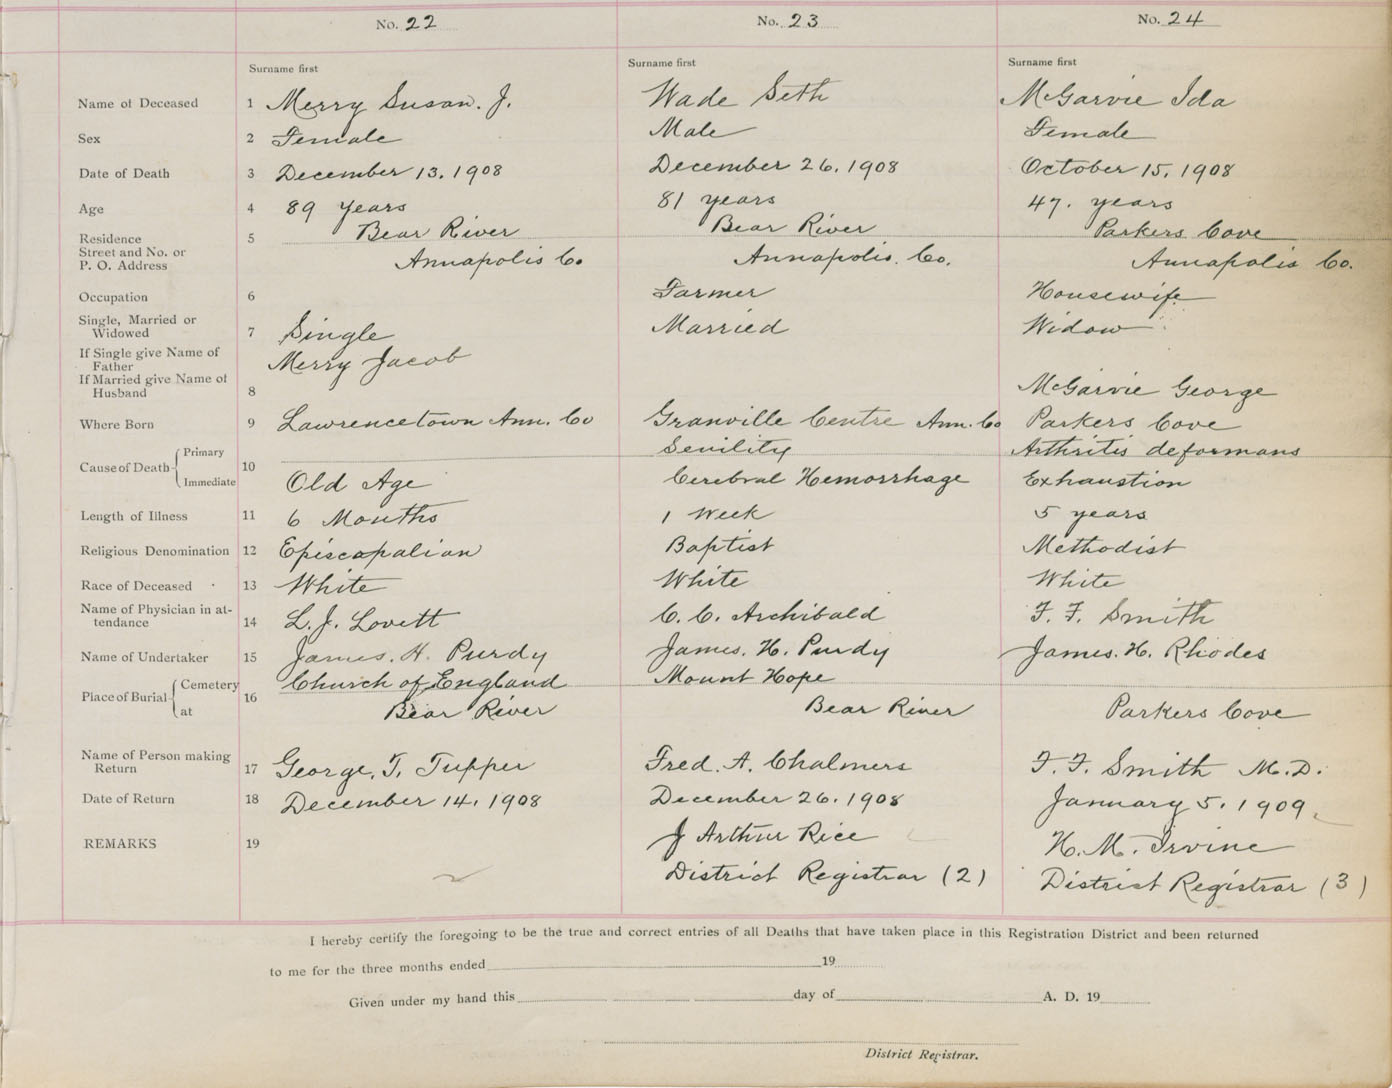 No. 22 No. 23 No. 24
Surname first Surname first Surname first
Name of Deceased 1 Merry Susan. J. Wade Seth McGarvie Ida
Sex 2 Female Male Female
Date of Death 3 December 13. 1908 December 26. 1908 October 15. 1908
Age 4 89 years 81 years 47. years
Residence 5 Bear River Bear River Parkers Cove
Street and No. or
P. O. Address Annapolis Co. Annapolis. Co. Annapolis Co.
Occupation 6 Farmer Housewife
Single, Married or
Widowed 7 Single Married Widow
If Single give Name of
Father Merry Jacob
If Married give Name of
Husband 8 McGarvie George
Where Born 9 Lawrencetown Ann. Co Granville Centre Ann. Co Parkers Cove
Cause of Death Primary Senility Arthritis deformans
10
Immediate Old Age Cerebral Hemorrhage Exhaustion
Length of Illness 11 6 Months 1 Week 5 years
Religious Denomination 12 Episcopalian Baptist Methodist
Race of Deceased 13 White White White
Name of Physician in at-
tendance 14 L. J. Lovett C. C. Archibald F. F. Smith
Name of Undertaker 15 James. H. Purdy James. H. Purdy James. H. Rhodes
Place of Burial Cemetery Church of England Mount Hope
16
at Bear River Bear River Parkers Cove
Name of Person making
Return 17 George. T. Tupper Fred. A. Chalmers F. F. Smith M.D.
Date of Return 18 December 14. 1908 December 26. 1908 January 5. 1909
REMARKS 19 J Arthur Rice H. M. Irvine
District Registrar (2) District Registrar (3)
I hereby certify the foregoing to be the true and correct entries of all Deaths that have taken place in this Registration District and been returned
to me for the three months ended 19
Given under my hand this day of A. D. 19
District Registrar.